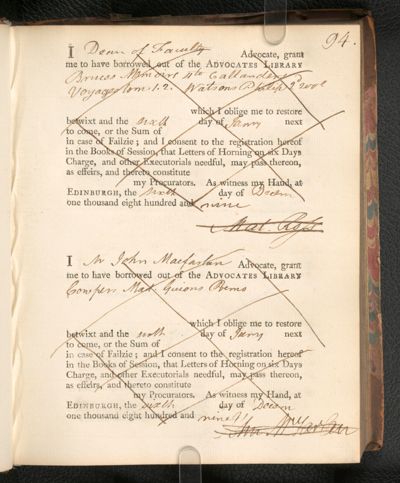 94.
I Dean of Faculty Advocate, grant
me to have borrowed out of the ADVOCATES LIBRARY
Bruces Memoirs 4to Callanders
Voyages tom 1. 2. Watsons Philip 2d 2 vol
which I oblige me to restore
betwixt and the sixth day of Janry next
to come, or the Sum of
in case of Failzie; and I consent to the registration hereof
in the Books of Session, that Letters of Horning on six Days
Charge, and other Executorials needful, may pass thereon,
as effeirs, and thereto constitute
my Procurators. As witness my Hand, at
EDINBURGH, the sixth day of Decem
one thousand eight hundred and nine
I Mr John Macfarlan Advocate, grant
me to have borrowed out of the ADVOCATES LIBRARY
Cowpers Guions Poems
which I oblige me to restore
betwixt and the sixth day of Janry next
to come, or the Sum of
in case of Failzie; and I consent to the registration hereof
in the Books of Session, that Letters of Horning on six Days
Charge, and other Executorials needful, may pass thereon,
as effeirs, and thereto constitute
my Procurators. As witness my Hand, at
EDINBURGH, the sixth day of Decem
one thousand eight hundred and nine